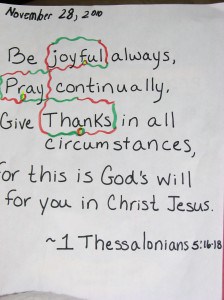 November 28, 2010
Be joyful always,
Pray continually,
Give Thanks in all
circumstances,
for this is God's will
for you in Christ Jesus.
~1 Thessalonians 5:16-18